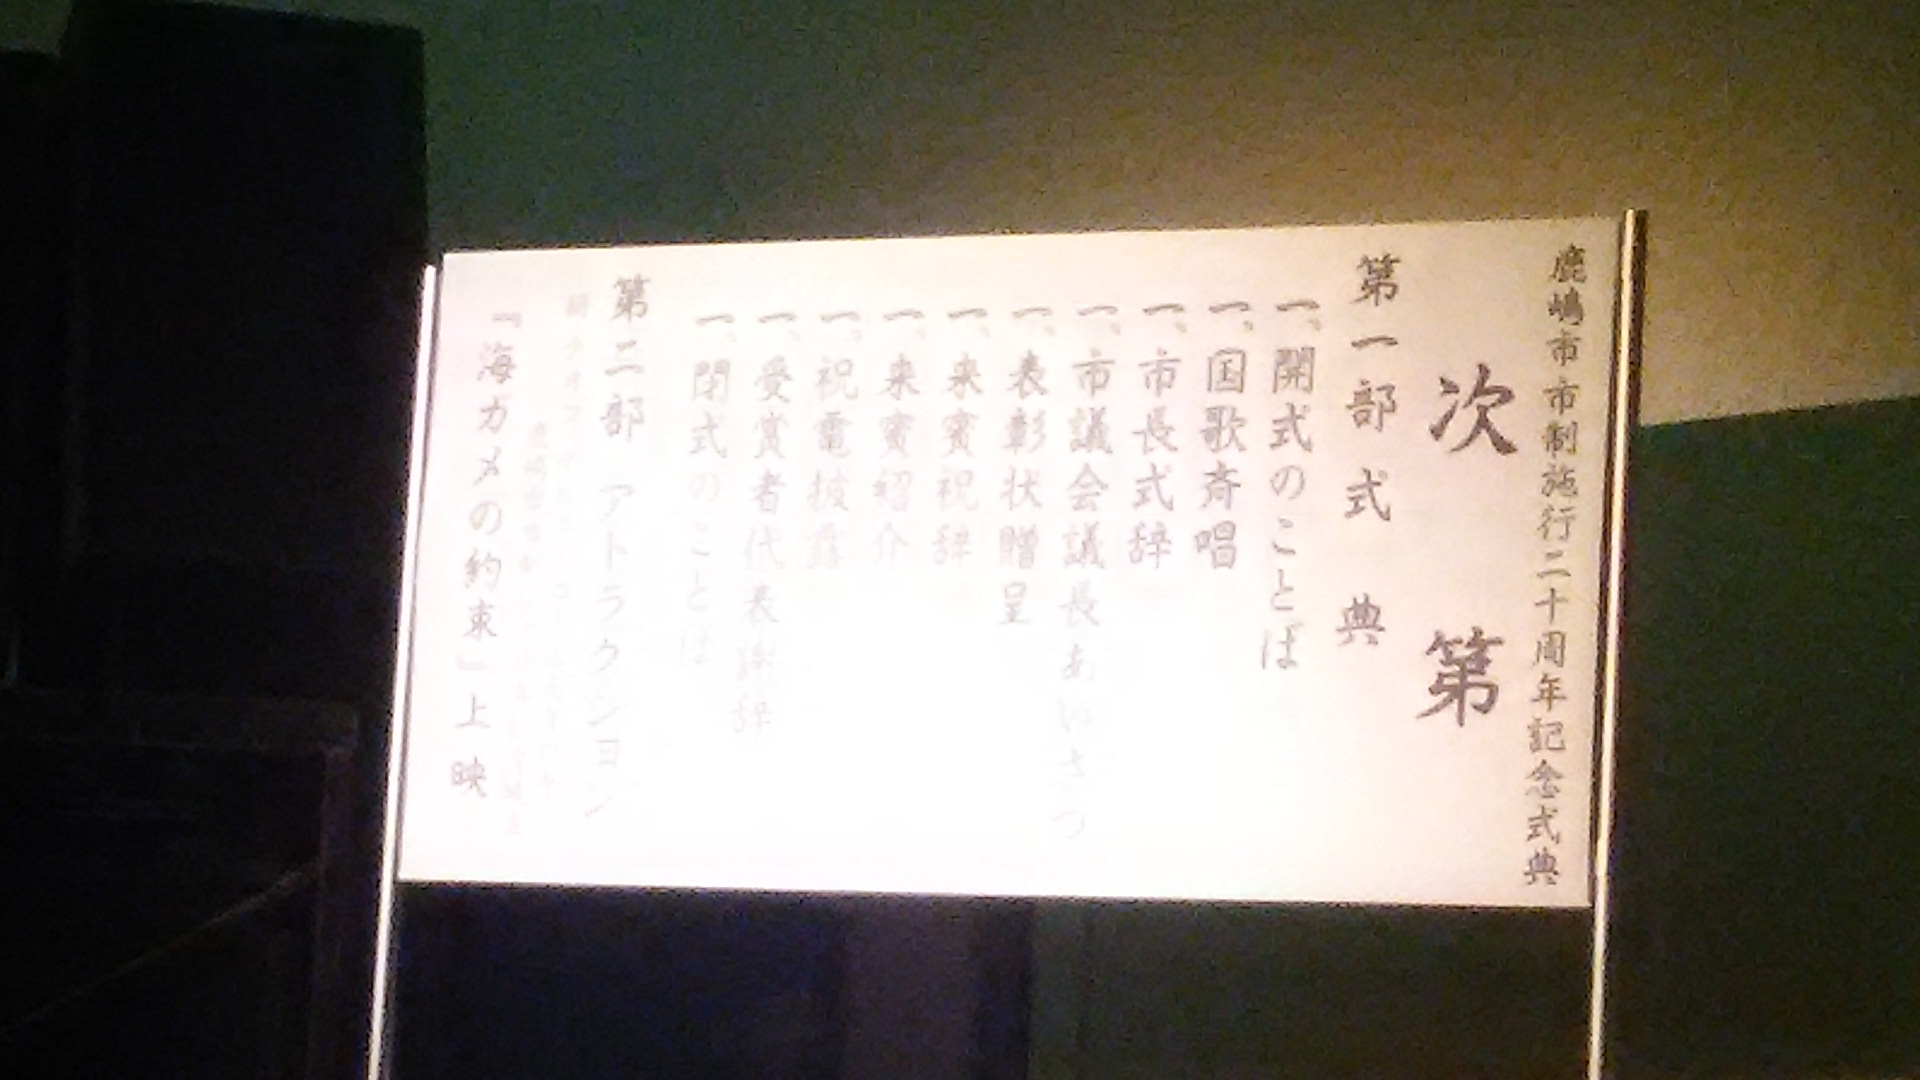 鹿嶋市市制施行二十周年記念式典
次第
第一部 式典
一、開式のことば
一、国歌斉唱
一、市長式辞
一、市議会議長あいさつ
一、表彰状贈呈
一、来賓祝辞
一、来賓紹介
一、祝電披露
一、受賞者代表謝辞
一、閉式のことば
第二部 アトラクション
『海カメの約束』上映